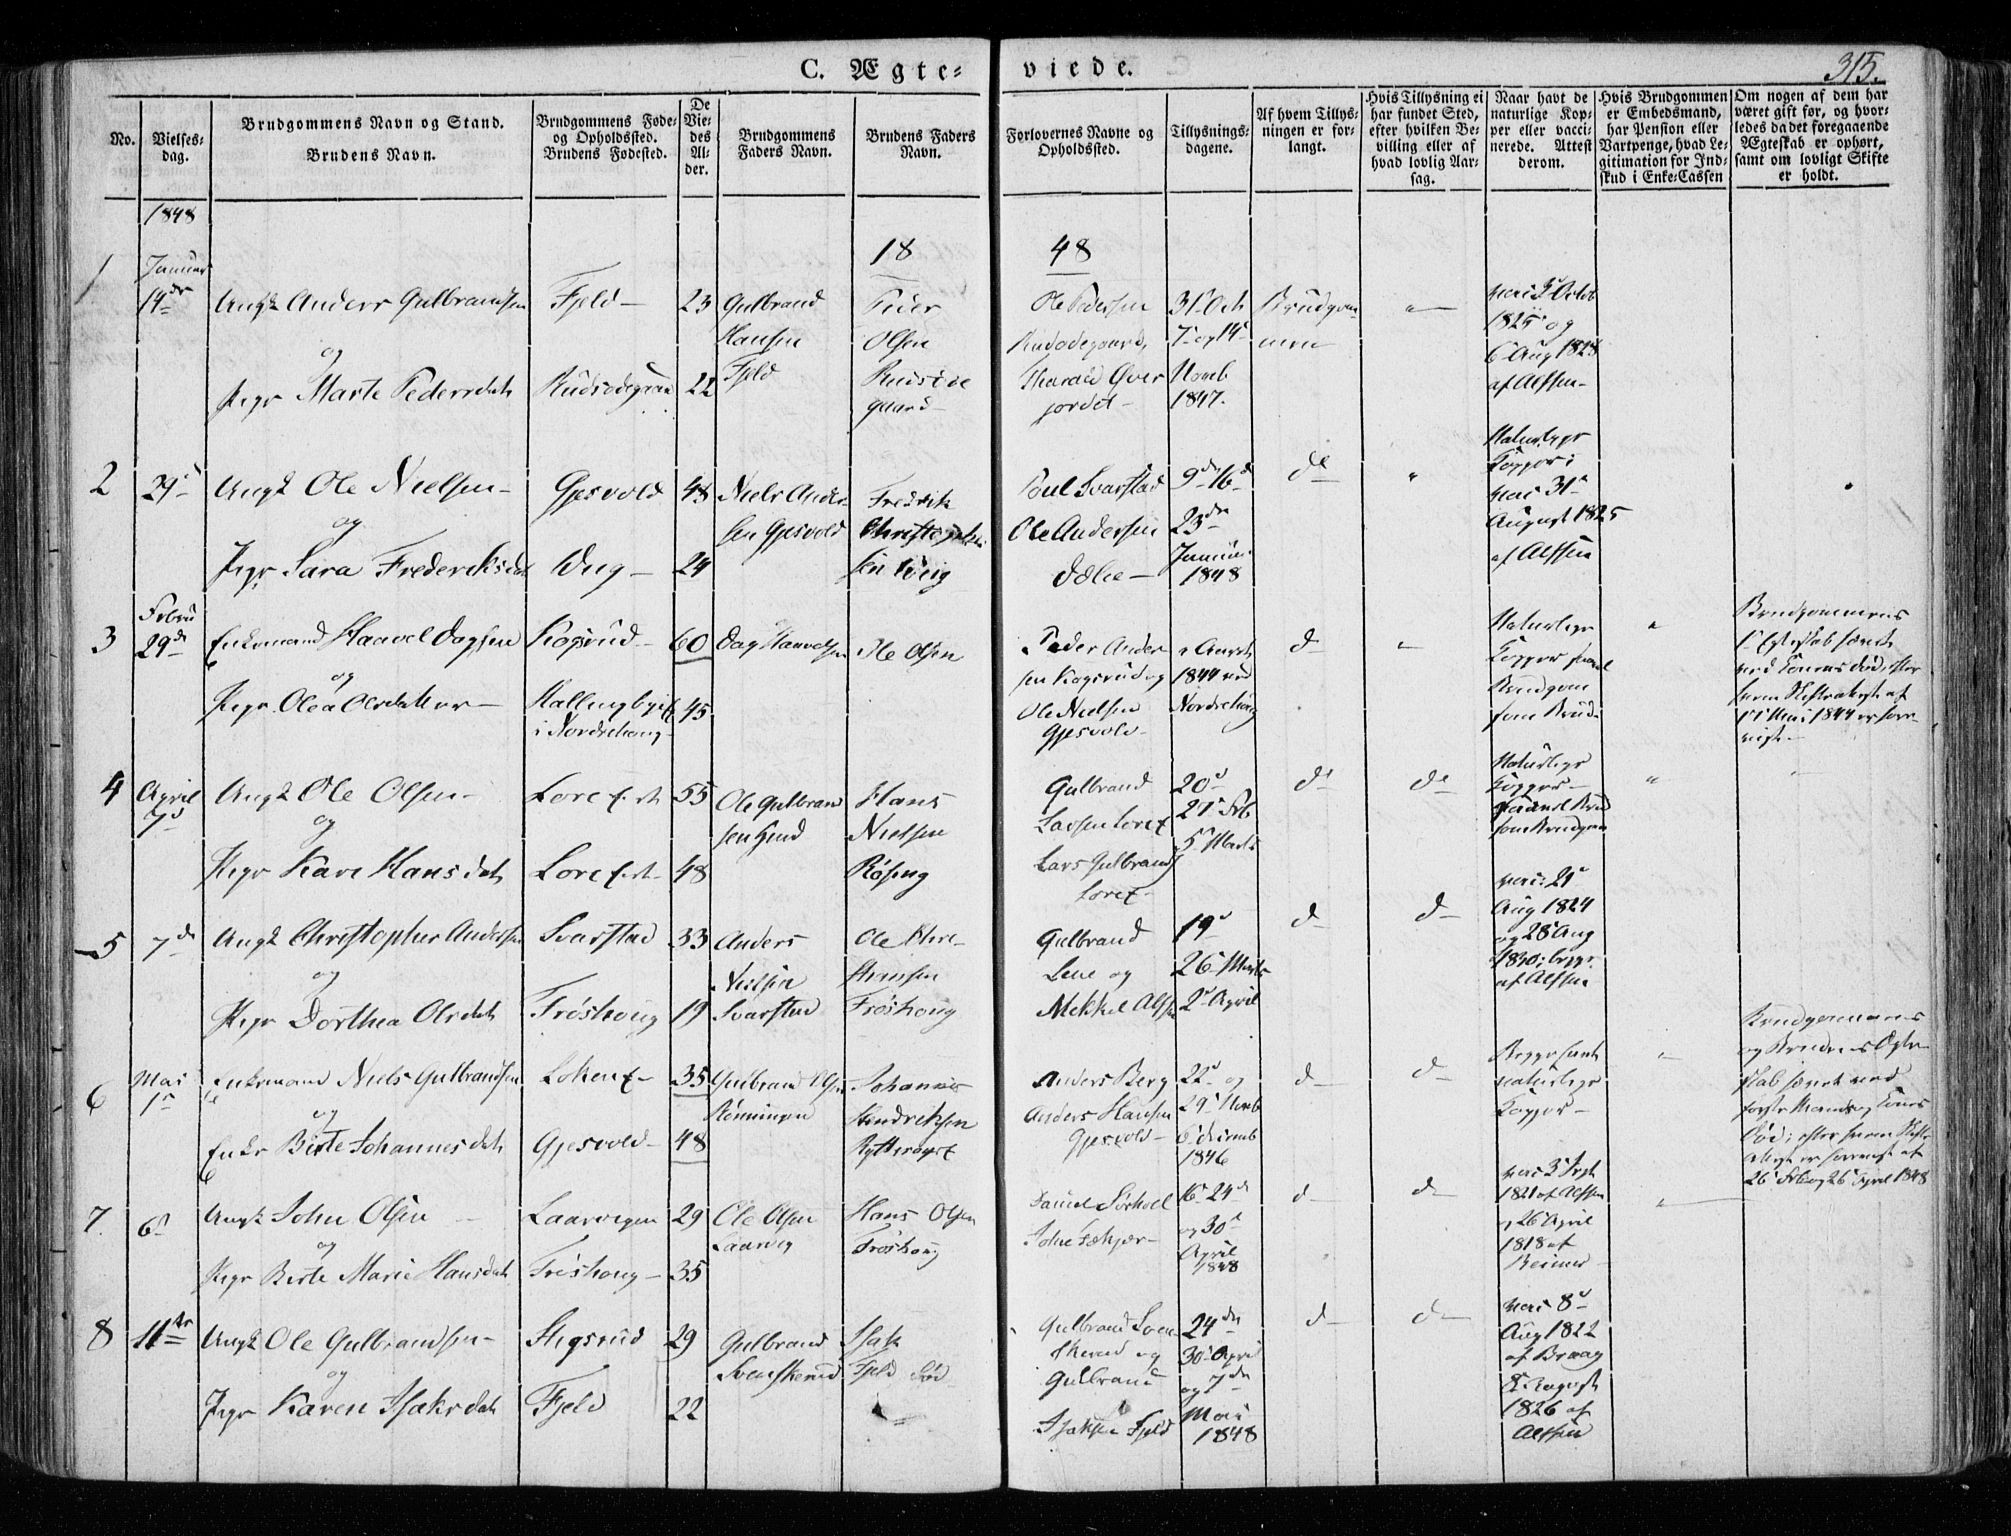 C. Ægte= viede.
315.
No.
Vielses-
dag.
Brudgommens Navn og Stand.
Brudens Navn.
Brudgommens Føde-
og Opholdssted.
Brudens Fødested.
De
Vie-
des
Al-
der.
Brudgommens
Faders Navn.
Brudens Faders
Navn.
Forlovernes Navne og
Opholdssted.
Tillysnings-
dagene.
Af hvem Tillys-
ningen er for-
langt.
Hvis Tillysning ei
har fundet Sted,
efter hvilken Be-
villing eller af
hvad lovlig Aar-
sag.
Naar havt de
naturlige Kop-
per eller vacci-
nerede. Attest
derom.
Hvis Brudgommen
er Embedsmand,
har Pension eller
Vartpenge, hvad Le-
gitimation for Ind-
skud i Enke-Cassen
Om nogen af dem har
været gift før, og hvor-
ledes da det foregaaende
Ægteskab er ophørt,
samt om lovligt Skifte
er holdt.
1848
18 48
1
Januar
14de
Ungk Anders Gulbrandsen
og
Pige Marte Pedersdat
Fjeld
Rudsødegaard
23
22
Gulbrand
Hansen
Fjeld
Peder
Olsen
Rudsøde
gaard
Ole Pedersen
Rudødegaard,
Harald Øver
jordet
31 Oct
7 og 14
Novb
1847.
Brudgom
men
1825 og
6 Aug 1828
af Alfsen
2
29
Ungk Ole Nielsen
og
Pige Sara Frederiksdat
Gjesvold
Weg
48
24
Niels Ander
sen Gjesvold
Fredrik
Christophe
sen Weig
Poul Svarstad
Ole Andersen
Dælie
9de 16d
23de
Januar
1848
do
Naturlige
Kopper
vac: 31
August 1825
af Alfsen
3
Febru
29de
Enkemand Haavel Dagsen
og
Pige Olea Olesdatter
Kogsrud
Hallingby
i Norderhoug
60
45
Dag Haavelsen
Ole Olsen
Peder Ander
sen Kogsrud og
Ole Nielsen
Gjesvold
1844 ved
Norderhoug
d
Naturlige
Kopper saavel
Brudgom
som Brud
Brudgommens
Ægteskab hævet
ved Konens Død, efter
hvem Skifteakt af
Mai 1844 er fore
vist
4
April
7d
Ungk Ole Olsen
og
Pige Kari Hansdat
Lore
Lore
55
48
Ole Gulbrand
sen
Hans
Nielsen
Røsing
Gulbrand
Larsen Lore
Lars Gulbrands
Lore
20d
27 Feb
5 Marts
do
do
Naturlige
Kopper
saavel Brud
som Brudgom
5
7de
Ungk Christopher Andersen
og
Pige Dorthea Olesdat
Svarstad
Frøshoug
33
19
Anders
Nielsen
Svarstad
Ole Chri
stensen
Frøshoug
Gulbrand
Lene og
Mekkel Alfsen
19d
26 Marts
2 April
d
d
vac: 21
Aug 1824
og 28 Aug
1830 begge
af Alfsen
6
Mai
1e
Enkemand Niels Gulbrandsen
og
Enke Birte Johannesdat
Loken
Gjesvold
35
48
Gulbrand Olsen
Rønningen
Johannes
Hendriksen
Rytterager
Anders Berg
Anders Hansen
Gjesvold
22 og
29 Novb
6 Decemb
1846
d
d
Begge havt
naturlige
Kopper
Brudgommens
og Brudens Ægte
skab hævet ved
første Mands og Kones
Død; efter hvem Skifte
26 Feb og 26 April 1848
7.
6
Ungk John Olsen
og
Pige Birte Marie Hansdat
Laarvegen
Frøshoug
29
35
Ole Olsen
Laarvig
Hans Olsen
Frøshoug
Daniel Sørhoel
John
16 24de
og 30
April
1848
d
d
vac: 3 Sept
1821 af Alfsen
og 26 April
1818 af
8
11te
Ungk Ole Gulbrandsen
og
Pige Karen Isaksdat
Stigsrud
Fjeld
29
22
Gulbrand
Svenskerud
Isak
Fjeld Død
Gulbrand Sven
skerud og
Gulbrand
Isaksen Fjeld
24de
30 April
og 7de
Mai
1848
d
d
vac: 8
Aug 1822
af Braag
8 August
1826 af
Alfsen